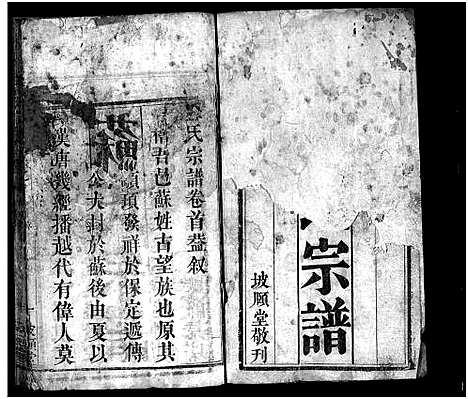 宗譜
坡願堂敬刊
氏宗譜卷首
叙
吾邑蘇姓古望族也原其
蘇
頊發祥於保定遞傳
公夫封於蘇後由夏以
漢唐幾經播越代有偉人莫